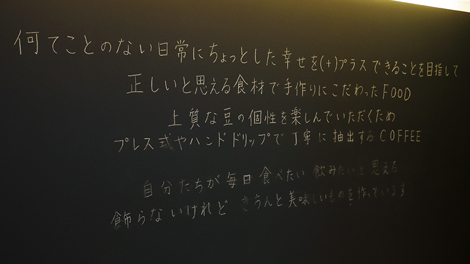 何てことのない日常にちょっとした幸せを(+)プラスできることを目指して
正しいと思える食材で手作りにこだわったFOOD
上質な豆の個性を楽しんでいただくため
プレス式やハンドドリップで丁寧に抽出するCOFFEE
自分たちが毎日食べたい 飲みたいと思える
飾らないけれど きちんと美味しいものを作っています